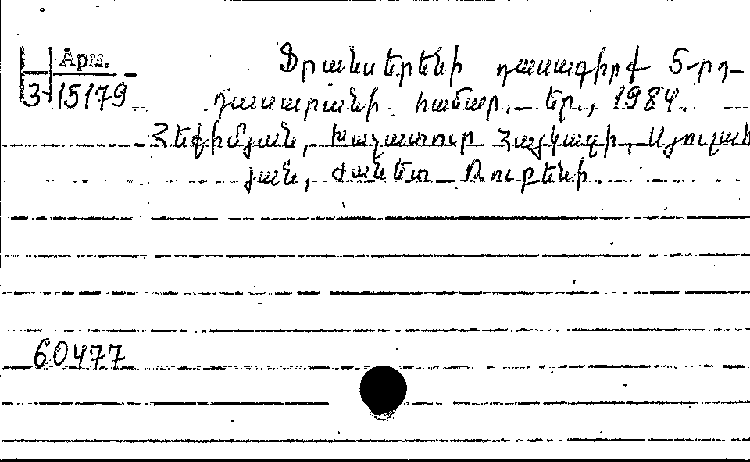 Арм.
3-15179
Ֆրանսերենի դասագիրք 5-րդ
դասարանի համար. Եր., 1984.
Հեքիմյան, Խաչատուր Հայկազի, Այուլան
յան, Ժանետ Ռուբենի.
60477